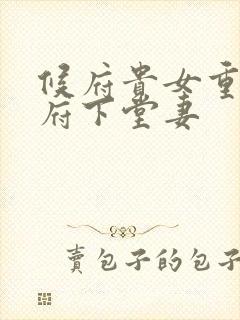 候府貴女重
府下堂妻
賣包子的包子